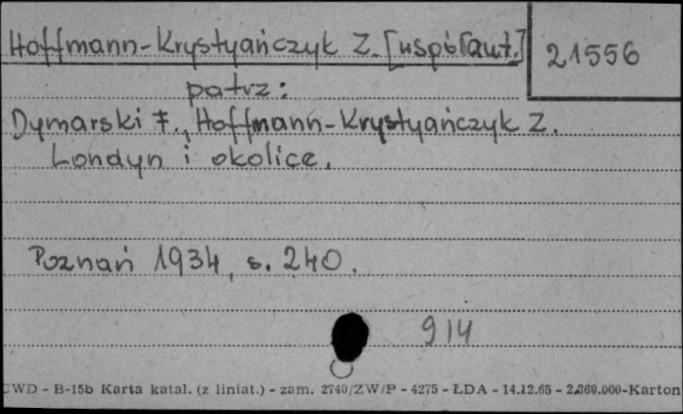 Hoffmann-Krystyańczyk Z. [współaut.]
21556
patrz:
Dymarski F., Hoffmann-Krystyańczyk Z.
Londyn i okolice.
Poznań 1934, s. 240.
914
CWD - B-15b Karta katal. (z liniat.) - zam. 2740/ZW/P - 4275 - ŁDA - 14.12.65 - 2.360.000-Karton